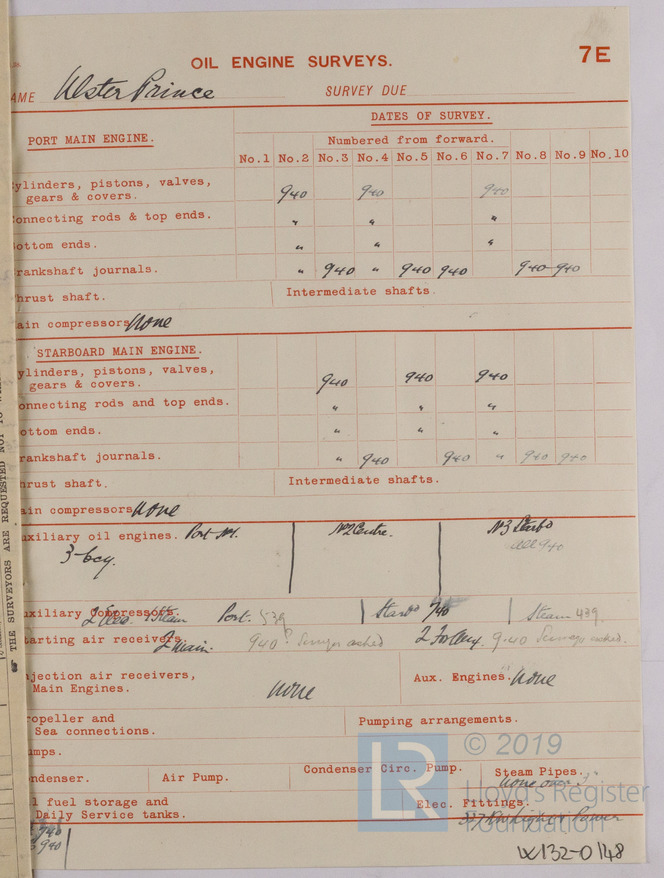 OIL ENGINE SURVEYS.
7E
AME Ulster Prince SURVEY DUE
DATES OF SURVEY.
PORT MAIN ENGINE.
Numbered from forward.
No.1 No.2 No.3 No.4 No.5 No.6 No.7 No.8 No.9 No.10
ylinders, pistons, valves,
gears & covers. 940 940 940
onnecting rods & top ends. " " "
ottom ends. " " "
rankshaft journals. " 940 " 940 940 940 940
hrust shaft. Intermediate shafts.
ain compressors none
STARBOARD MAIN ENGINE.
ylinders, pistons, valves,
gears & covers. 940 940 940
onnecting rods and top ends. " " "
ottom ends. " " "
rankshaft journals. " 940 940 " 940 940
hrust shaft. Intermediate shafts.
ain compressors none
uxiliary oil engines. Port No1. No2 Centre. No3 Starbd
940
3-6cy.
uxiliary Compressors.
2 Elec. 1 Steam Port. 539 Starbd 940 Steam 439.
tarting air receivers.
2 Main. 940 2 for Aux. 9.40
njection air receivers,
Main Engines. none
Aux. Engines. none
ropeller and
Sea connections.
Pumping arrangements.
umps.
ndenser. Air Pump. Condenser Circ. Pump. Steam Pipes.
none over 3"
l fuel storage and
Daily Service tanks.
Elec. Fittings.
Power
940
940
THE SURVEYORS ARE REQUESTED NOT TO
LR
© 2019
Lloyd's Register
Foundation
W132-0148